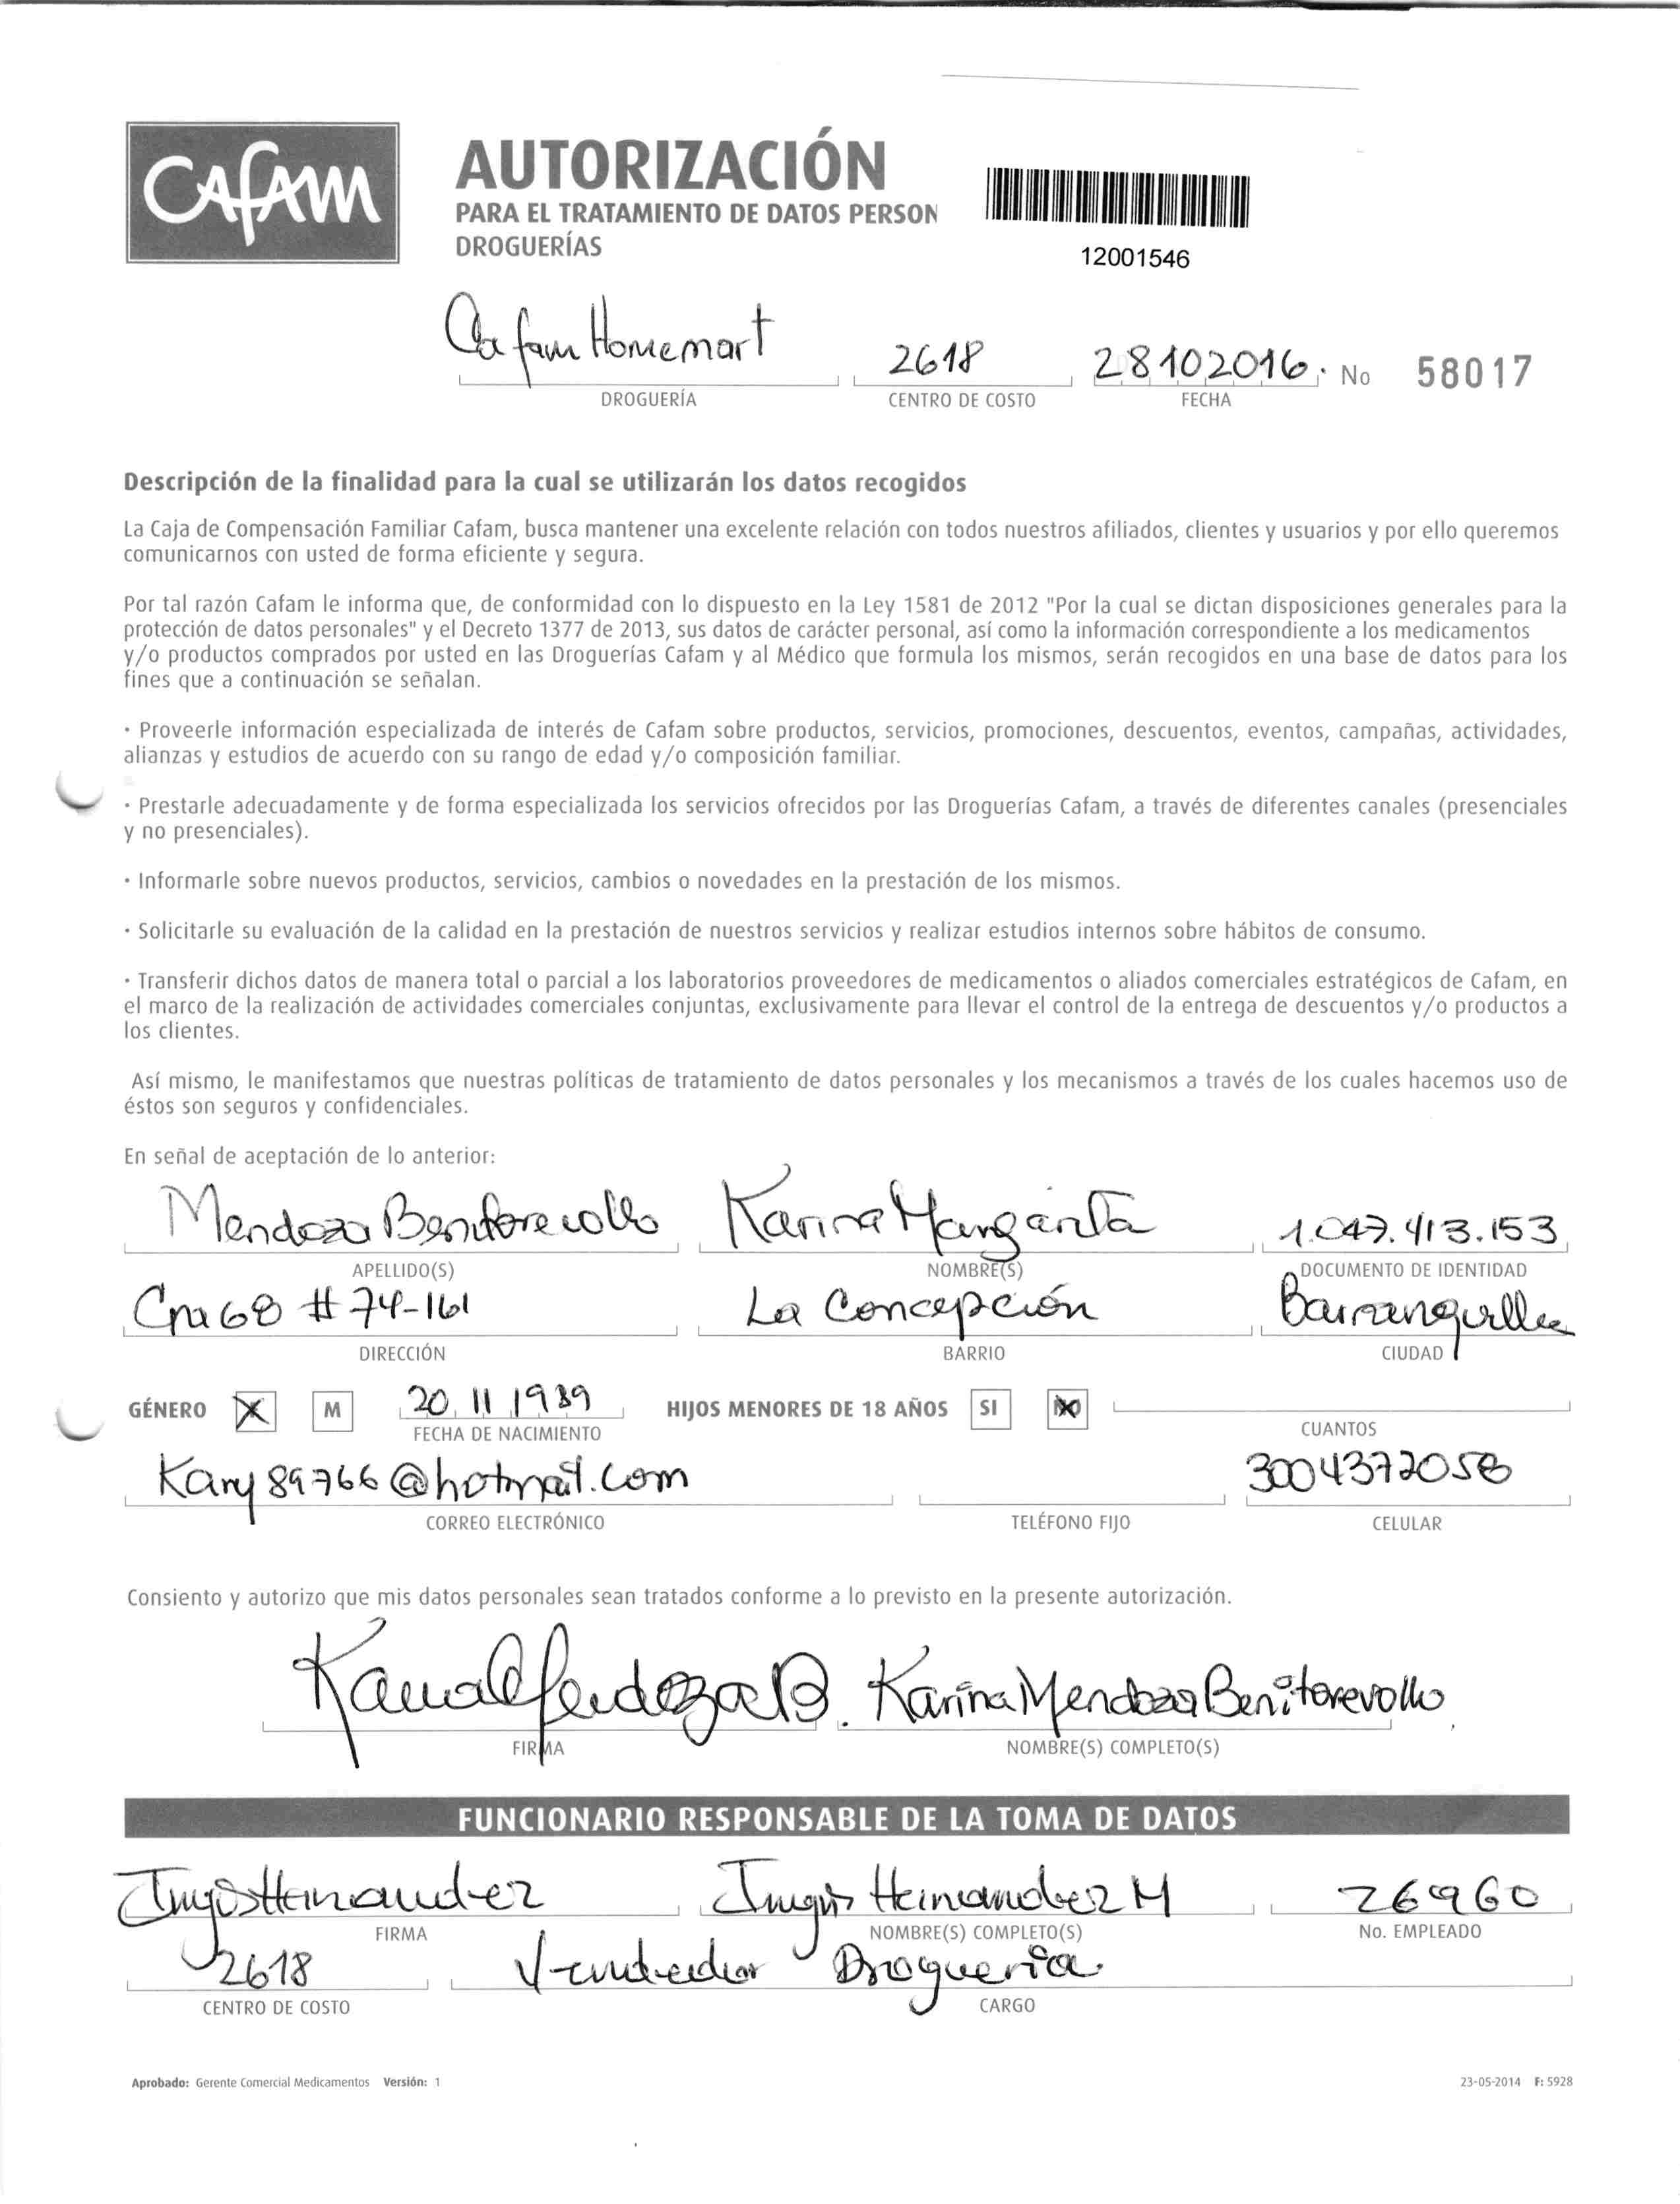 CAfAM
AUTORIZACIÓN
PARA EL TRATAMIENTO DE DATOS PERSON
DROGUERÍAS
12001546
Cafam Homemart 2618 28102016. No 58017
DROGUERÍA CENTRO DE COSTO FECHA
Descripción de la finalidad para la cual se utilizarán los datos recogidos
La Caja de Compensación Familiar Cafam, busca mantener una excelente relación con todos nuestros afiliados, clientes y usuarios y por ello queremos
comunicarnos con usted de forma eficiente y segura.
Por tal razón Cafam le informa que, de conformidad con lo dispuesto en la Ley 1581 de 2012 "Por la cual se dictan disposiciones generales para la
protección de datos personales" y el Decreto 1377 de 2013, sus datos de carácter personal, así como la información correspondiente a los medicamentos
y/o productos comprados por usted en las Droguerías Cafam y al Médico que formula los mismos, serán recogidos en una base de datos para los
fines que a continuación se señalan.
· Proveerle información especializada de interés de Cafam sobre productos, servicios, promociones, descuentos, eventos, campañas, actividades,
alianzas y estudios de acuerdo con su rango de edad y/o composición familiar.
· Prestarle adecuadamente y de forma especializada los servicios ofrecidos por las Droguerías Cafam, a través de diferentes canales (presenciales
y no presenciales).
· Informarle sobre nuevos productos, servicios, cambios o novedades en la prestación de los mismos.
· Solicitarle su evaluación de la calidad en la prestación de nuestros servicios y realizar estudios internos sobre hábitos de consumo.
· Transferir dichos datos de manera total o parcial a los laboratorios proveedores de medicamentos o aliados comerciales estratégicos de Cafam, en
el marco de la realización de actividades comerciales conjuntas, exclusivamente para llevar el control de la entrega de descuentos y/o productos a
los clientes.
Así mismo, le manifestamos que nuestras políticas de tratamiento de datos personales y los mecanismos a través de los cuales hacemos uso de
éstos son seguros y confidenciales.
En señal de aceptación de lo anterior:
Mendoza Benitorevollo Karina Margarita 1.047.413.153
APELLIDO(S) NOMBRE(S) DOCUMENTO DE IDENTIDAD
Cra 68 # 74-161 La Concepción Barranquilla
DIRECCIÓN BARRIO CIUDAD
GÉNERO X M 20 11 1989 HIJOS MENORES DE 18 AÑOS SI NO
FECHA DE NACIMIENTO CUANTOS
Kary89766@hotmail.com 3004372058
CORREO ELECTRÓNICO TELÉFONO FIJO CELULAR
Consiento y autorizo que mis datos personales sean tratados conforme a lo previsto en la presente autorización.
Karina Mendoza B. Karina Mendoza Benitorevollo
FIRMA NOMBRE(S) COMPLETO(S)
FUNCIONARIO RESPONSABLE DE LA TOMA DE DATOS
Hernandez Hernandez M 26960
FIRMA NOMBRE(S) COMPLETO(S) No. EMPLEADO
2618 Vendedor Drogueria
CENTRO DE COSTO CARGO
Aprobado: Gerente Comercial Medicamentos Versión: 1 23-05-2014 F: 5928